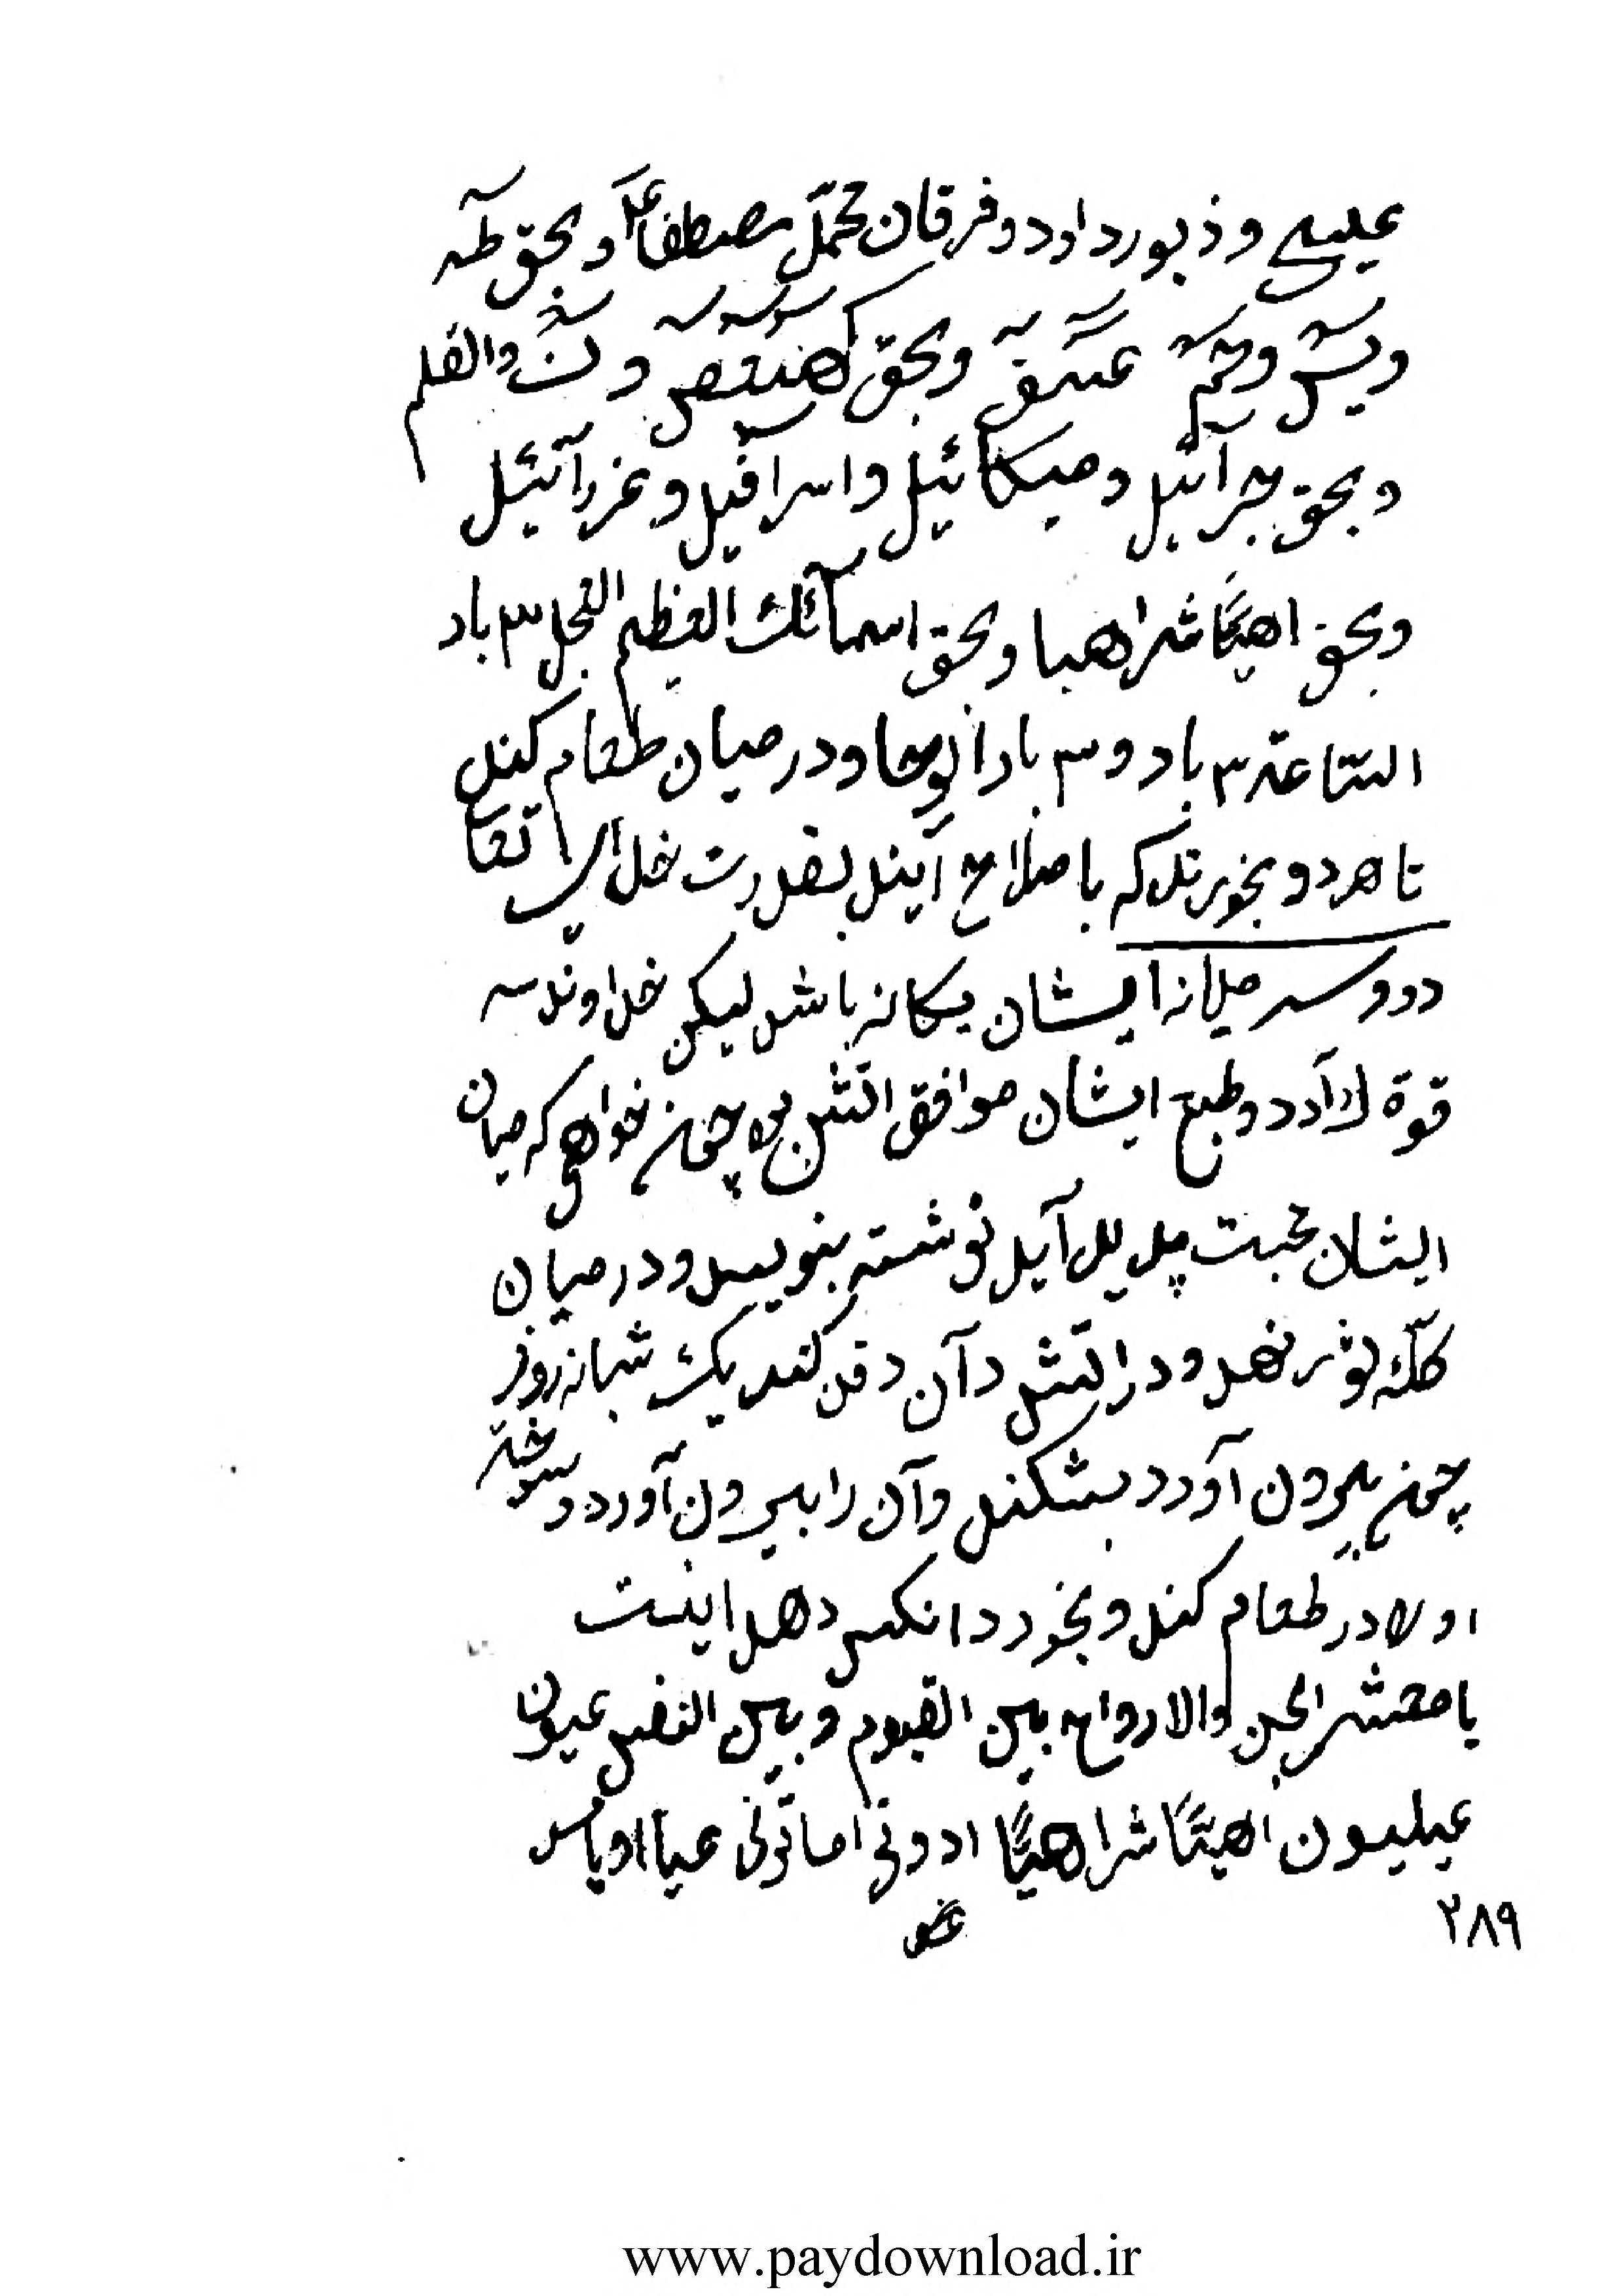 عیسی و ذبور داود و فرقان محمّد مصطفا و بحق طٓه
و یٓسٓ و حٰمٓ عٓسٓقٓ و بحق کٓهٰیٰعٓصٓ و نٓ والقلم
و بحق جبرآئیل و میکائیل و اسرافیل و عزرآئیل
و بحق اهیًّا شراهیا و بحق اسمآئک العظیم العجل ۳ باد
السّاعة ۳ باد و ۳ باد الوحا و در میان طعام کنند
تا هر دو بخورند که باصلاح آیند بقدرت خدای تعا
درو سر میانه ایشان یکانه باشد لیکن خداوند سه
قوة دارد و طبع ایشان موافق اتش چون خواهی که میان
ایشان محبت پدید آید نوشته بنویسد و در میان
کلّه نهد و در اتش دآن دفن کند یک شبانه روز
چون بیرون آورد بشکند و آن را بیرون آورد و سوخته
اولا در طعام کند و بخورد انکس دهد اینست
یا معشر الجن والارواح بین القیوم و بین النفس عیون
عیلیون اهیًّا شراهیًّا ادونی اما تونی عیا او یاس
۲۸۹
www.paydownload.ir